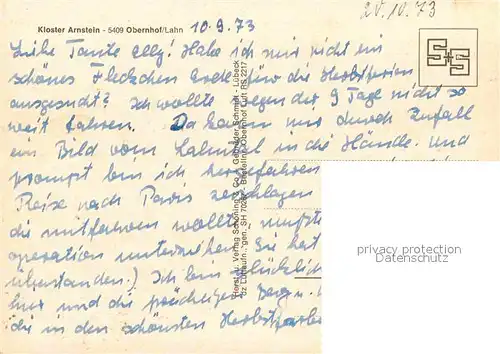 Kloster Arnstein - 5409 Obernhof/Lahn
10.9.73
20.10.73
Liebe Tante Elly! Habe ich mir nicht ein
schönes Fleckchen Erde für die Herbstferien
ausgesucht? Ich wollte wegen der 9 Tage nicht so
weit fahren. Da kam mir durch Zufall
ein Bild vom Lahntal in die Hände. und
prompt bin ich hergefahren
Reise nach Paris zerschlagen
die mitfahren wollte, mußte
operation unterziehen. Sie hat
überstanden.) Ich bin glücklich
hier und die prächtigen Berg u.
die in den schönsten Herbstfarben
Herst. u. Verlag Schöning & Co + Gebrüder Schmidt - Lübeck
Luftaufn. gen. SH Bestellnr. Obernhof Luft RS 2217
S+S
privacy protection
Datenschutz